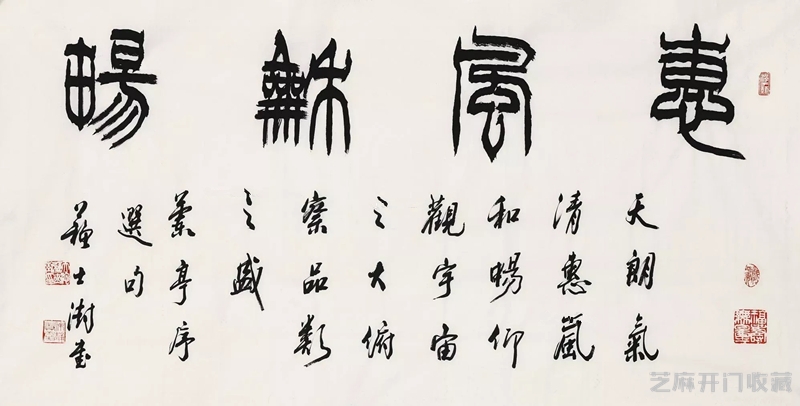 惠風龢暢
天朗氣
清惠風
和暢仰
觀宇宙
之大俯
察品類
之盛
蘭亭序
選句
蘇士澍書
芝麻开门收藏